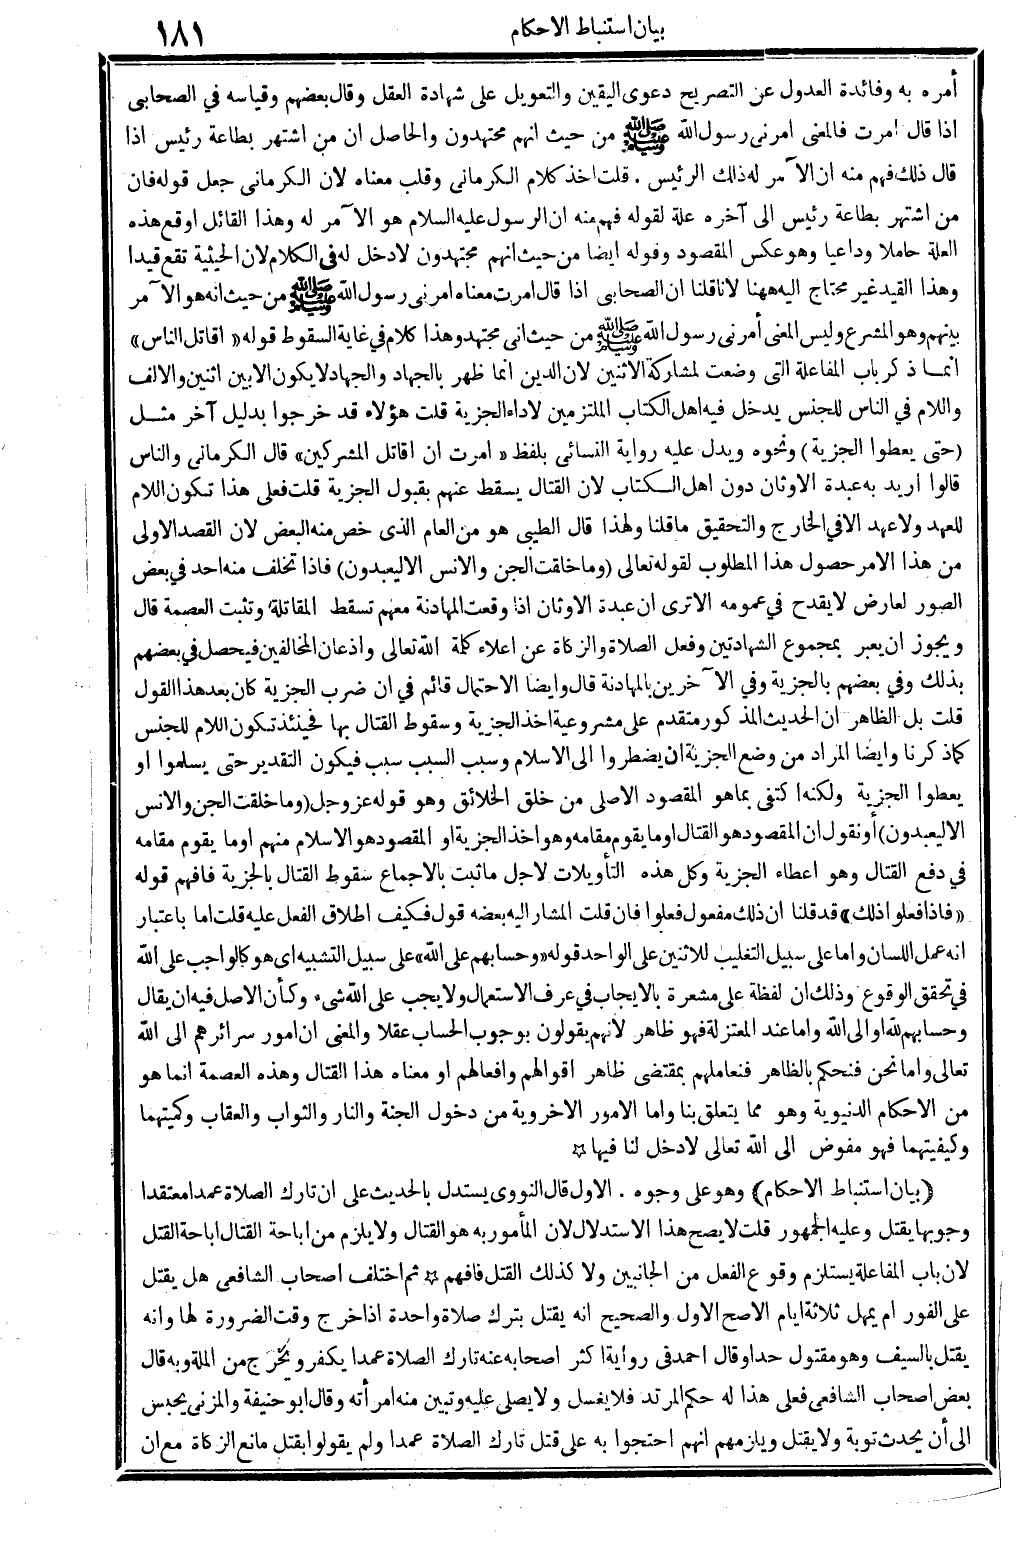 بيان استنباط الاحكام ١٨١
أمره به وفائدة العدول عن التصريح دعوى اليقين والتعويل على شهادة العقل وقال بعضهم وقياسه في الصحابى
اذا قال امرت فالمعنى امرنى رسول الله ﷺ من حيث انهم مجتهدون والحاصل ان من اشتهر بطاعة رئيس اذا
قال ذلك فهم منه ان الآمر له ذلك الرئيس . قلت اخذ كلام الكرمانى وقلب معناه لان الكرمانى جعل قوله فان
من اشتهر بطاعة رئيس الى آخره علة لقوله فهم منه ان الرسول عليه السلام هو الآمر له وهذا القائل اوقع هذه
العلة حاملا وداعيا وهو عكس المقصود وقوله ايضا من حيث انهم مجتهدون لادخل له فى الكلام لان الحيثية تقع قيدا
وهذا القيد غير محتاج اليه ههنا لاناقلنا ان الصحابى اذا قال امرت معناه امرنى رسول الله ﷺ من حيث انه هو الآمر
بينهم وهو المشرع وليس المعنى أمرنى رسول الله ﷺ من حيث انى مجتهد وهذا كلام في غاية السقوط قوله « اقاتل الناس»
انما ذكر باب المفاعلة التى وضعت لمشاركة الاثنين لان الدين انما ظهر بالجهاد والجهاد لايكون الابين اثنين والالف
واللام في الناس للجنس يدخل فيه اهل الكتاب الملتزمين لاداء الجزية قلت هؤلاء قد خرجوا بدليل آخر مثل
(حتى يعطوا الجزية) ونحوه ويدل عليه رواية النسائى بلفظ « امرت ان اقاتل المشركين» قال الكرمانى والناس
قالوا اريد به عبدة الاوثان دون اهل الكتاب لان القتال يسقط عنهم بقبول الجزية قلت فعلى هذا تكون اللام
للعهد ولاعهد الافي الخارج والتحقيق ماقلنا ولهذا قال الطيبى هو من العام الذى خص منه البعض لان القصد الاولى
من هذا الامر حصول هذا المطلوب لقوله تعالى (وماخلقت الجن والانس الاليعبدون) فاذا تخلف منه احد في بعض
الصور لعارض لايقدح في عمومه الاترى ان عبدة الاوثان اذا وقعت المهادنة معهم تسقط المقاتلة وتثبت العصمة قال
ويجوز ان يعبر بمجموع الشهادتين وفعل الصلاة والزكاة عن اعلاء كلمة الله تعالى واذعان المخالفين فيحصل في بعضهم
بذلك وفي بعضهم بالجزية وفي الآخرين بالمهادنة قال وايضا الاحتمال قائم في ان ضرب الجزية كان بعد هذا القول
قلت بل الظاهر ان الحديث المذكور متقدم على مشروعية اخذ الجزية وسقوط القتال بها فحينئذ تكون اللام للجنس
كماذكرنا وايضا المراد من وضع الجزية ان يضطروا الى الاسلام وسبب السبب سبب فيكون التقدير حتى يسلموا او
يعطوا الجزية ولكنه اكتفى بماهو المقصود الاصلى من خلق الخلائق وهو قوله عزوجل (وماخلقت الجن والانس
الاليعبدون) أونقول ان المقصود هو القتال اوما يقوم مقامه وهو اخذ الجزية او المقصود هو الاسلام منهم اوما يقوم مقامه
في دفع القتال وهو اعطاء الجزية وكل هذه التأويلات لاجل ماثبت بالاجماع سقوط القتال بالجزية فافهم قوله
«فاذا فعلوا ذلك» قدقلنا ان ذلك مفعول فعلوا فان قلت المشار اليه بعضه قول فكيف اطلاق الفعل عليه قلت اما باعتبار
انه عمل اللسان واما على سبيل التغليب للاثنين على الواحد قوله «وحسابهم على الله» على سبيل التشبيه اى هو كالواجب على الله
في تحقق الوقوع وذلك ان لفظة على مشعرة بالايجاب في عرف الاستعمال ولايجب على الله شىء وكأن الاصل فيه ان يقال
وحسابهم لله او الى الله واما عند المعتزلة فهو ظاهر لانهم يقولون بوجوب الحساب عقلا والمعنى ان امور سرائرهم الى الله
تعالى واما نحن فنحكم بالظاهر فنعاملهم بمقتضى ظاهر اقوالهم وافعالهم او معناه هذا القتال وهذه العصمة انما هو
من الاحكام الدنيوية وهو مما يتعلق بنا واما الامور الاخروية من دخول الجنة والنار والثواب والعقاب وكميتهما
وكيفيتهما فهو مفوض الى الله تعالى لادخل لنا فيها ☆
(بيان استنباط الاحكام) وهو على وجوه . الاول قال النووى يستدل بالحديث على ان تارك الصلاة عمدا معتقدا
وجوبها يقتل وعليه الجمهور قلت لايصح هذا الاستدلال لان المأمور به هو القتال ولا يلزم من اباحة القتال اباحة القتل
لان باب المفاعلة يستلزم وقوع الفعل من الجانبين ولا كذلك القتل فافهم ☆ ثم اختلف اصحاب الشافعى هل يقتل
على الفور ام يمهل ثلاثة ايام الاصح الاول والصحيح انه يقتل بترك صلاة واحدة اذاخرج وقت الضرورة لها وانه
يقتل بالسيف وهو مقتول حدا وقال احمد فى رواية اكثر اصحابه عنه تارك الصلاة عمدا يكفر ويخرج من الملة وبه قال
بعض اصحاب الشافعى فعلى هذا له حكم المرتد فلا يغسل ولايصلى عليه وتبين منه امرأته وقال ابو حنيفة والمزنى يحبس
الى أن يحدث توبة ولايقتل ويلزمهم انهم احتجوا به على قتل تارك الصلاة عمدا ولم يقولوا بقتل مانع الزكاة مع ان